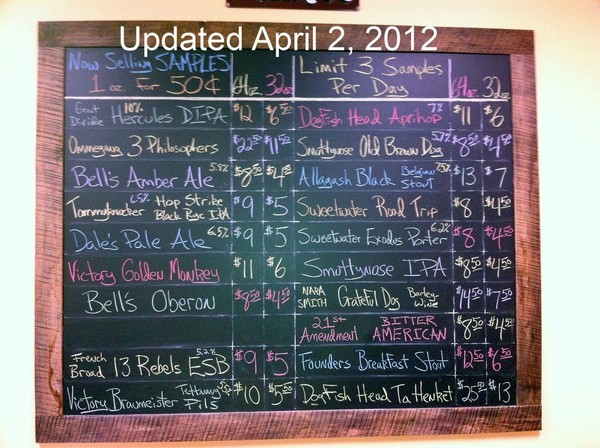 Updated April 2, 2012
Now Selling SAMPLES
1 oz. for 50¢
64oz. 32oz.
Great Divide Hercules DIPA 10% $12 $6.50
Ommegang 3 Philosophers $22.50 $11.50
Bell's Amber Ale 5.8% $8.50 $4.50
Tommyknocker 6.5% Hop Strike Black Rye IPA $9 $5
Dale's Pale Ale 6.5% $9 $5
Victory Golden Monkey $11 $6
Bell's Oberon $8.50 $4.50
French Broad 13 Rebels ESB 5.2% $9 $5
Victory Braumeister Tettnang Pils $10 $5.50
Limit 3 Samples
Per Day
64oz. 32oz.
Dogfish Head Aprihop 7% $11 $6
Smuttynose Old Brown Dog $8.50 $4.50
Allagash Black Belgian Stout 7.5% $13 $7
Sweetwater Road Trip $8 $4.50
Sweetwater Exodus Porter $8 $4.50
Smuttynose IPA $8.50 $4.50
SMITH Grateful Dog Barley Wine $14.50 $7.50
21st Amendment BITTER AMERICAN $8.50 $4.50
Founders Breakfast Stout $12.50 $6.50
DogFish Head Ta Henket $25.50 $13